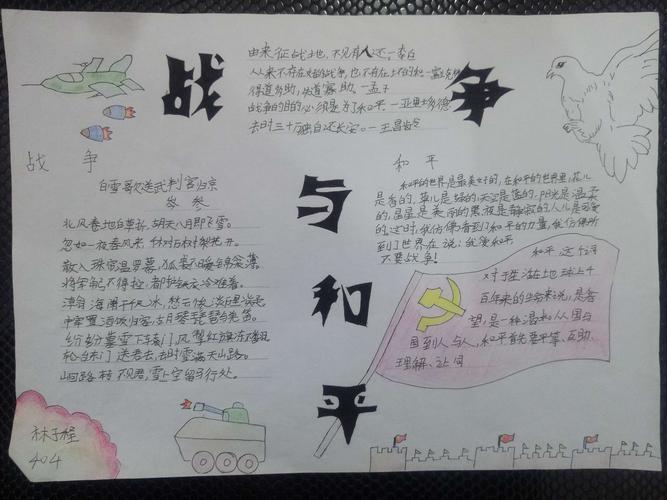 战争与和平
由来征战地，不见有人还。—李白
从来不存在好的战争，也不存在坏的和
得道多助，失道寡助。—孟子
战争的目的必须是为了和平—亚里士多德
去时三十万，独自还长安。—王昌龄
战 争
白雪歌送武判官归京
岑 参
北风卷地白草折，胡天八月即飞雪。
忽如一夜春风来，千树万树梨花开。
散入珠帘湿罗幕，狐裘不暖锦衾薄。
将军角弓不得控，都护铁衣冷难着。
瀚海阑干百丈冰，愁云惨淡万里凝。
中军置酒饮归客，胡琴琵琶与羌笛。
纷纷暮雪下辕门，风掣红旗冻不翻。
轮台东门送君去，去时雪满天山路。
山回路转不见君，雪上空留马行处。
和 平
和平的世界是最美好的，在和平的世界里，花儿
是香的，草儿是绿的，天空是蓝的，阳光是温柔
的，星星是美丽的，黑夜是静寂的，人儿是可爱
的。这时，我仿佛看到了和平的力量，我仿佛听
到了世界在说：我爱和平
不要战争！
和平 这个词
对于生活在地球上千
百年来的生命来说，是希
望，是一种温和，从国与
国到人与人，和平首先要平等、互助、
理解、让
林子程
404